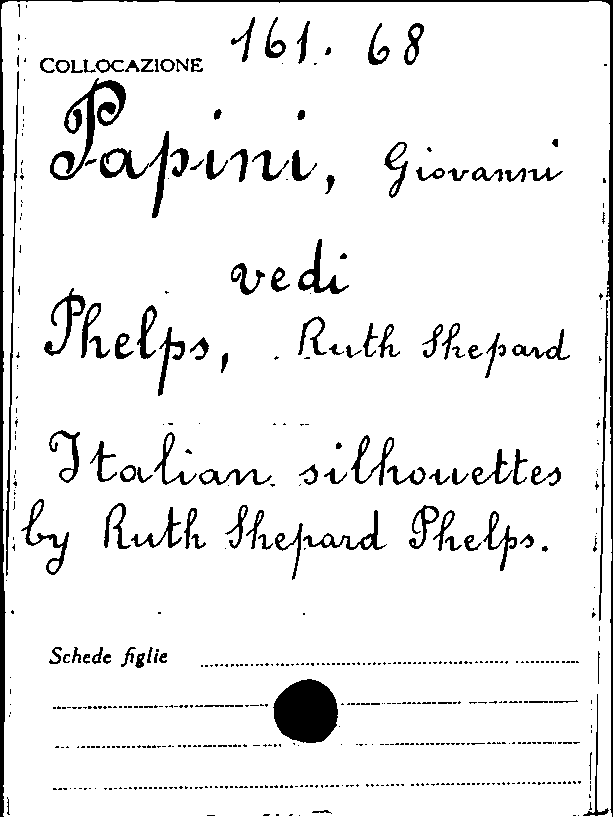 COLLOCAZIONE 161. 68
Papini, Giovanni
vedi
Phelps, Ruth Shepard
Italian silhouettes
by Ruth Shepard Phelps.
Schede figlie